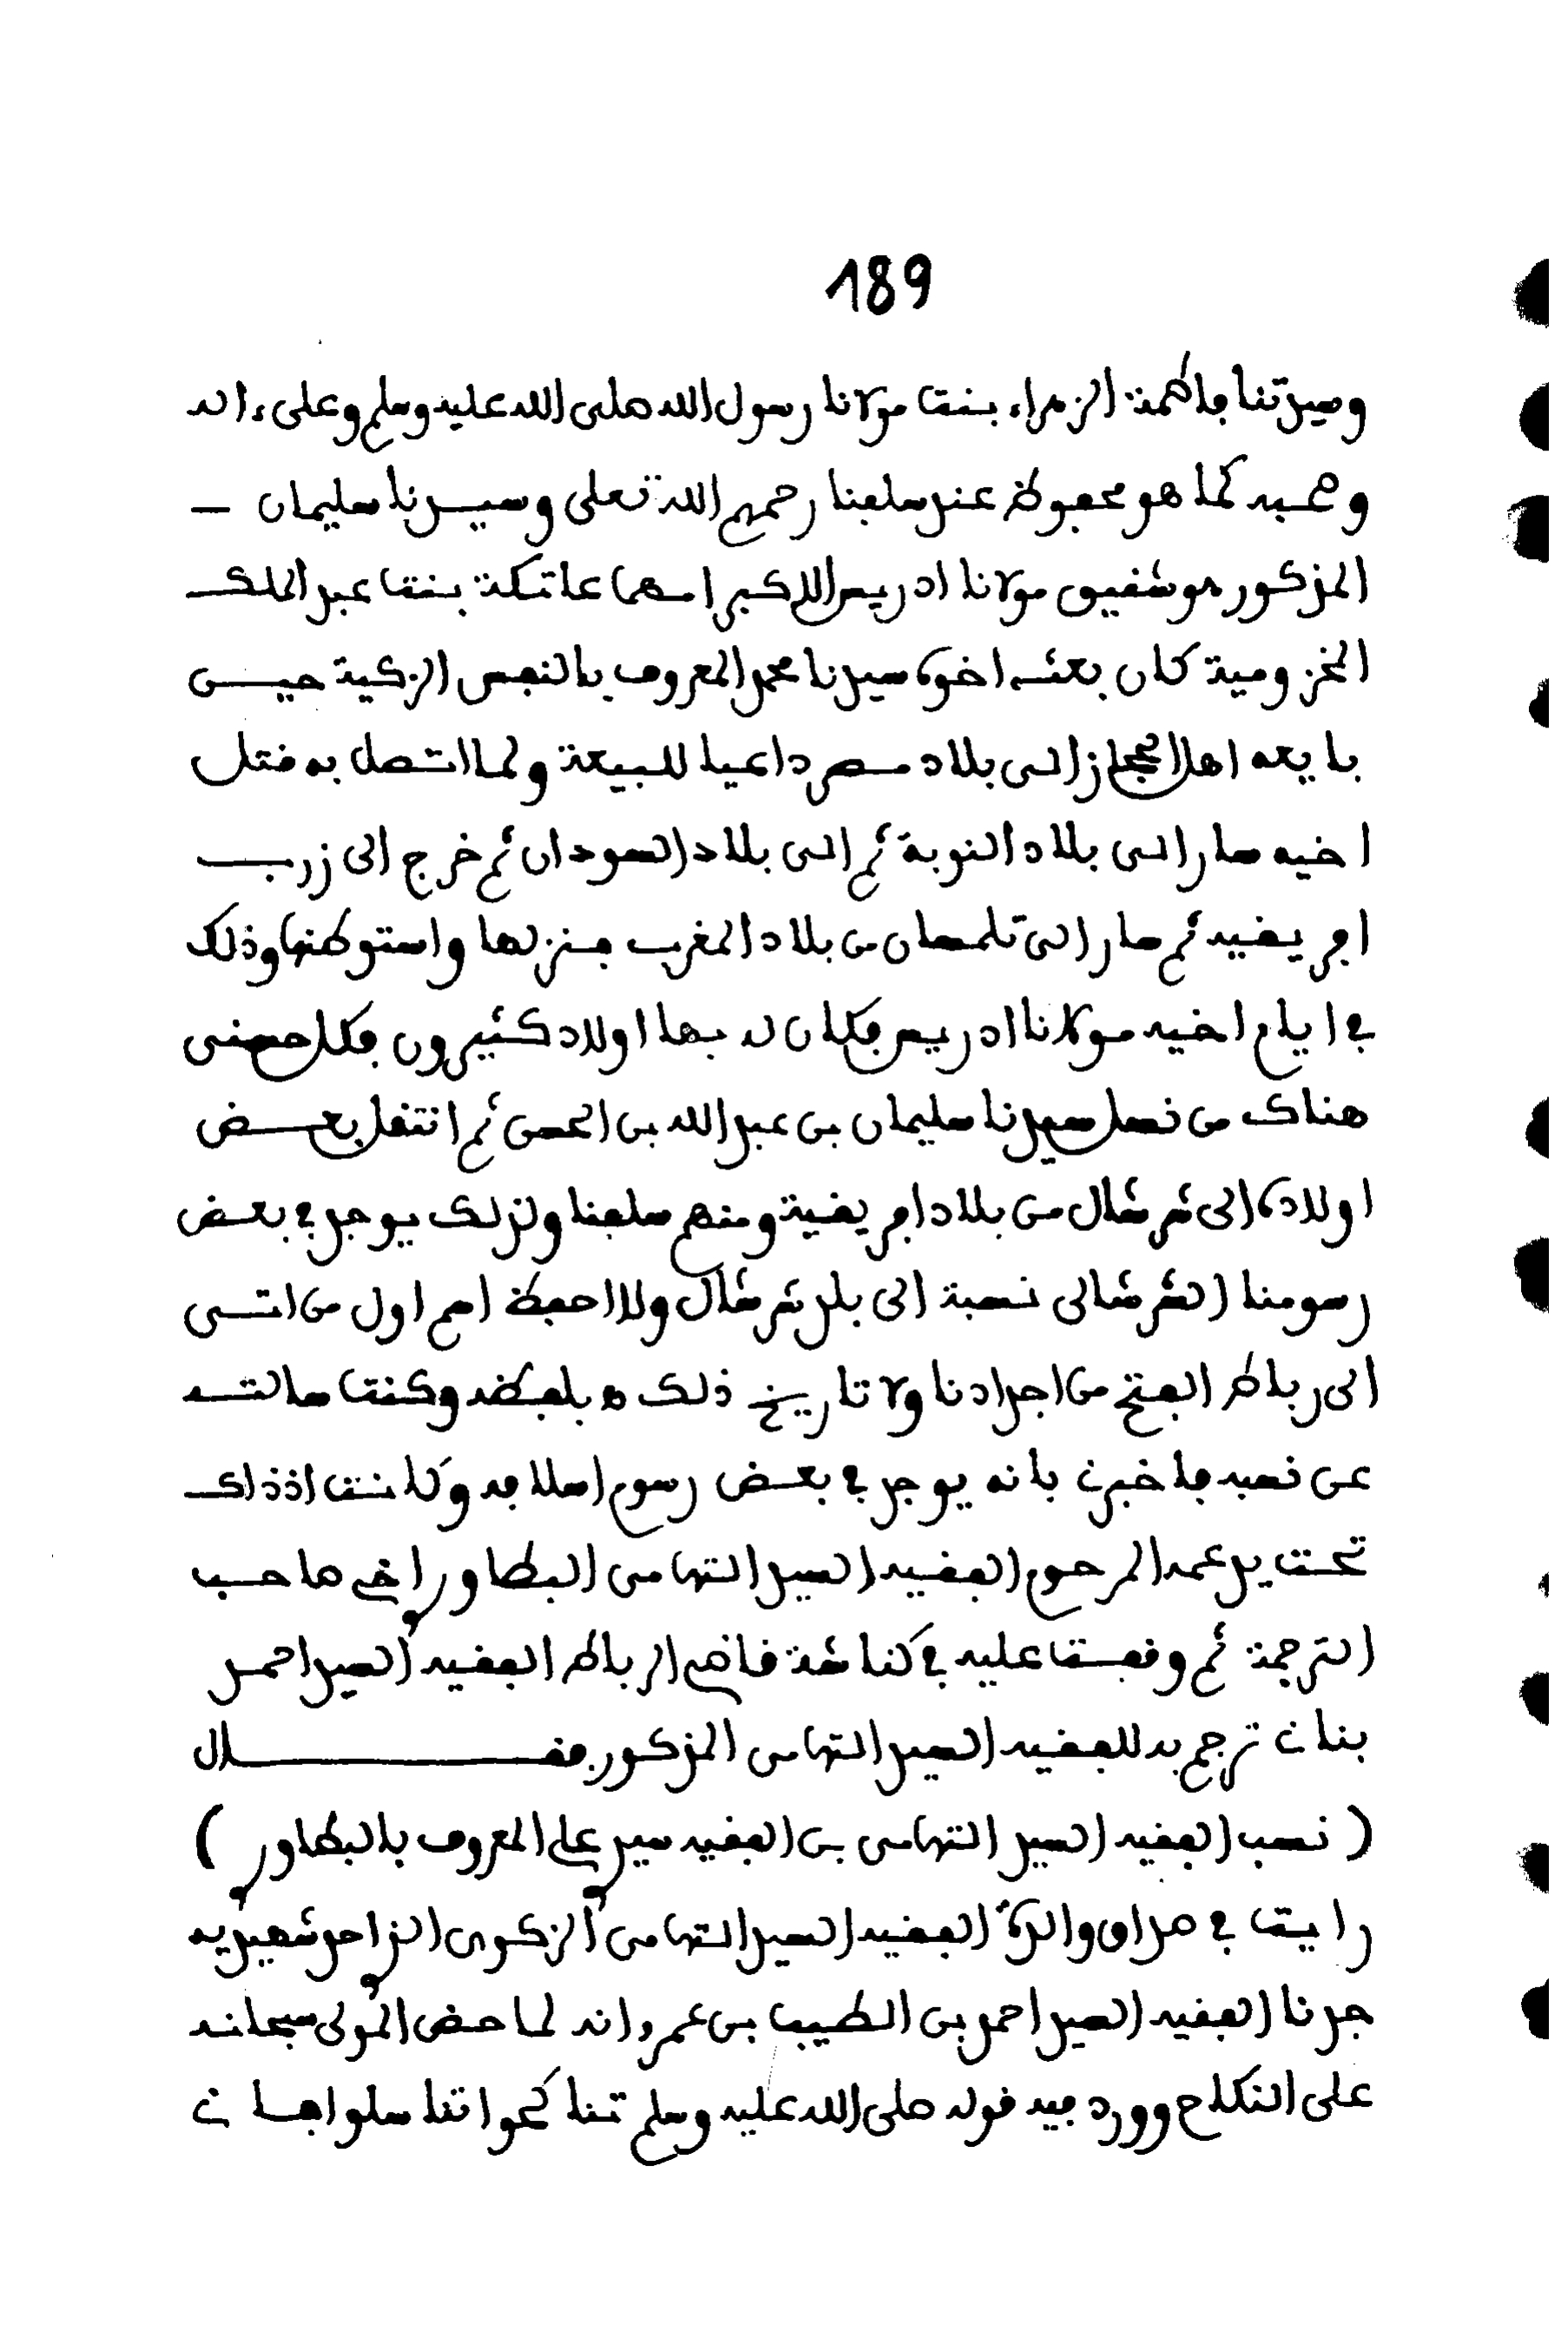 189
وسيدتنا فاطمة الزهراء بنت مولانا رسول الله صلى الله عليه وسلم وعلى ءاله
وصحبه كما هو محفوظ عند سلفنا رحمهم الله تعلى وسيدنا سليمان –
المذكور هو شفيق مولانا ادريس الاكبر امهما عاتكة بنت عبد الملك
المخزومية كان بعثه اخوه سيدنا محمد المعروف بالنفس الزكية حيـن
بايعه اهل الحجاز الى بلاد مصر داعيا للبيعة ولما اتصل به قتل
اخيه صار الى بلاد النوبة ثم الى بلاد السودان ثم خرج الى زاب
افريقيه ثم صار الى تلمسان من بلاد المغرب فنزلها واستوطنها وذلك
في ايام اخيه مولانا ادريس فكان له بها اولاد كثيرون فكل حسني
هناك من نسل سيدنا سليمان بن عبد الله بن الحسن ثم انتقل بعـض
اولاده الى شرشال من بلاد افريقية ومنهم سلفنا ولذلك يوجد في بعض
رسومنا الشرشالى نسبة الى بلد شرشال ولا احفظ اسم اول من اتـى
الى رباط الفتح من اجدادنا ولا تاريخ ذلك ه بلفظه وكنت سالتـه
عن نسبه فاخبرني بانه يوجد في بعض رسوم اسلافه وكانت اذذاك
تحت يد عمه المرحوم الفقيه السيد التهامى البطاوري اخي صاحب
الترجمة ثم وقفت عليه في كناشة قاضي الرباط الفقيه السيد احمد
بناني ترجم به للفقيه السيد التهامى المذكور فقـــال
( نسب الفقيه السيد التهامى بن الفقيه سيدي علي المعروف بالبطاوري )
رايت في صداق والدة الفقيه السيد التهامى الزكوى الذي احد شهيديه
جدنا الفقيه السيد احمد بن الطيب بن عمرو انه لما حض المولى سبحانه
على النكاح وورد فيه قوله صلى الله عليه وسلم تناكحوا تناسلوا فـاني